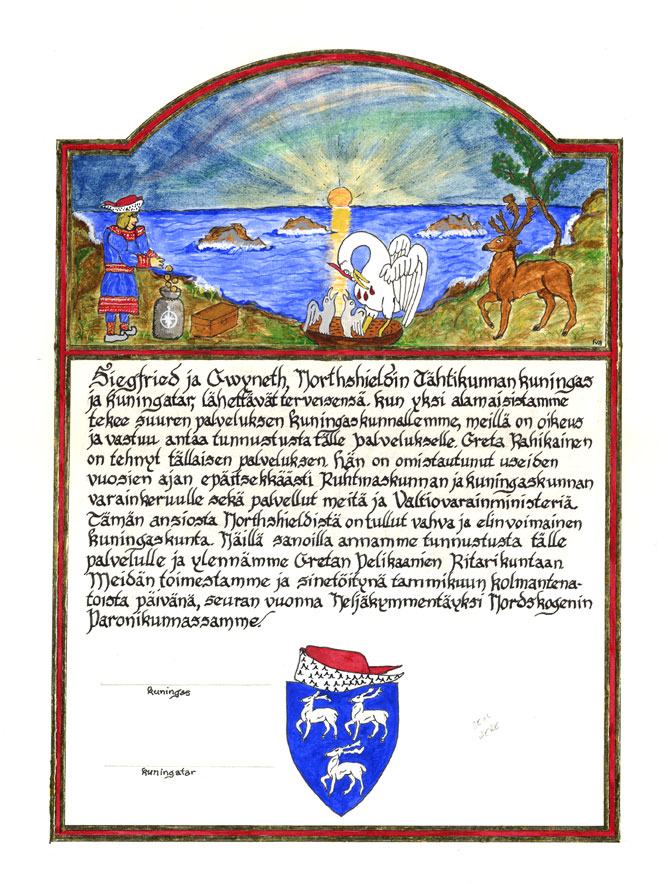 Siegfried ja Gwyneth, Northshieldin Tähtikunnan kuningas
ja kuningatar, lähettävät terveisensä. Kun yksi alamaisistamme
tekee suuren palveluksen kuningaskunnallemme, meillä on oikeus
ja vastuu antaa tunnustusta tälle palvelukselle. Greta Kahikainen
on tehnyt tällaisen palveluksen. Hän on omistautunut useiden
vuosien ajan epäitsekkäästi Ruhtinaskunnan ja kuningaskunnan
varainkeruulle sekä palvellut meitä ja Valtiovarainministeriä
Tämän ansiosta Northshieldistä on tullut vahva ja elinvoimainen
kuningaskunta. Näillä sanoilla annamme tunnustusta tälle
palvelulle ja ylennämme Gretan Pelikaanien Ritarikuntaan
Meidän toimestamme ja sinetöitynä tammikuun kolmantena-
toista päivänä, seuran vuonna Neljäkymmentäyksi Nordskogenin
Paronikunnassamme.
kuningas
kuningatar
SEAL
HERE